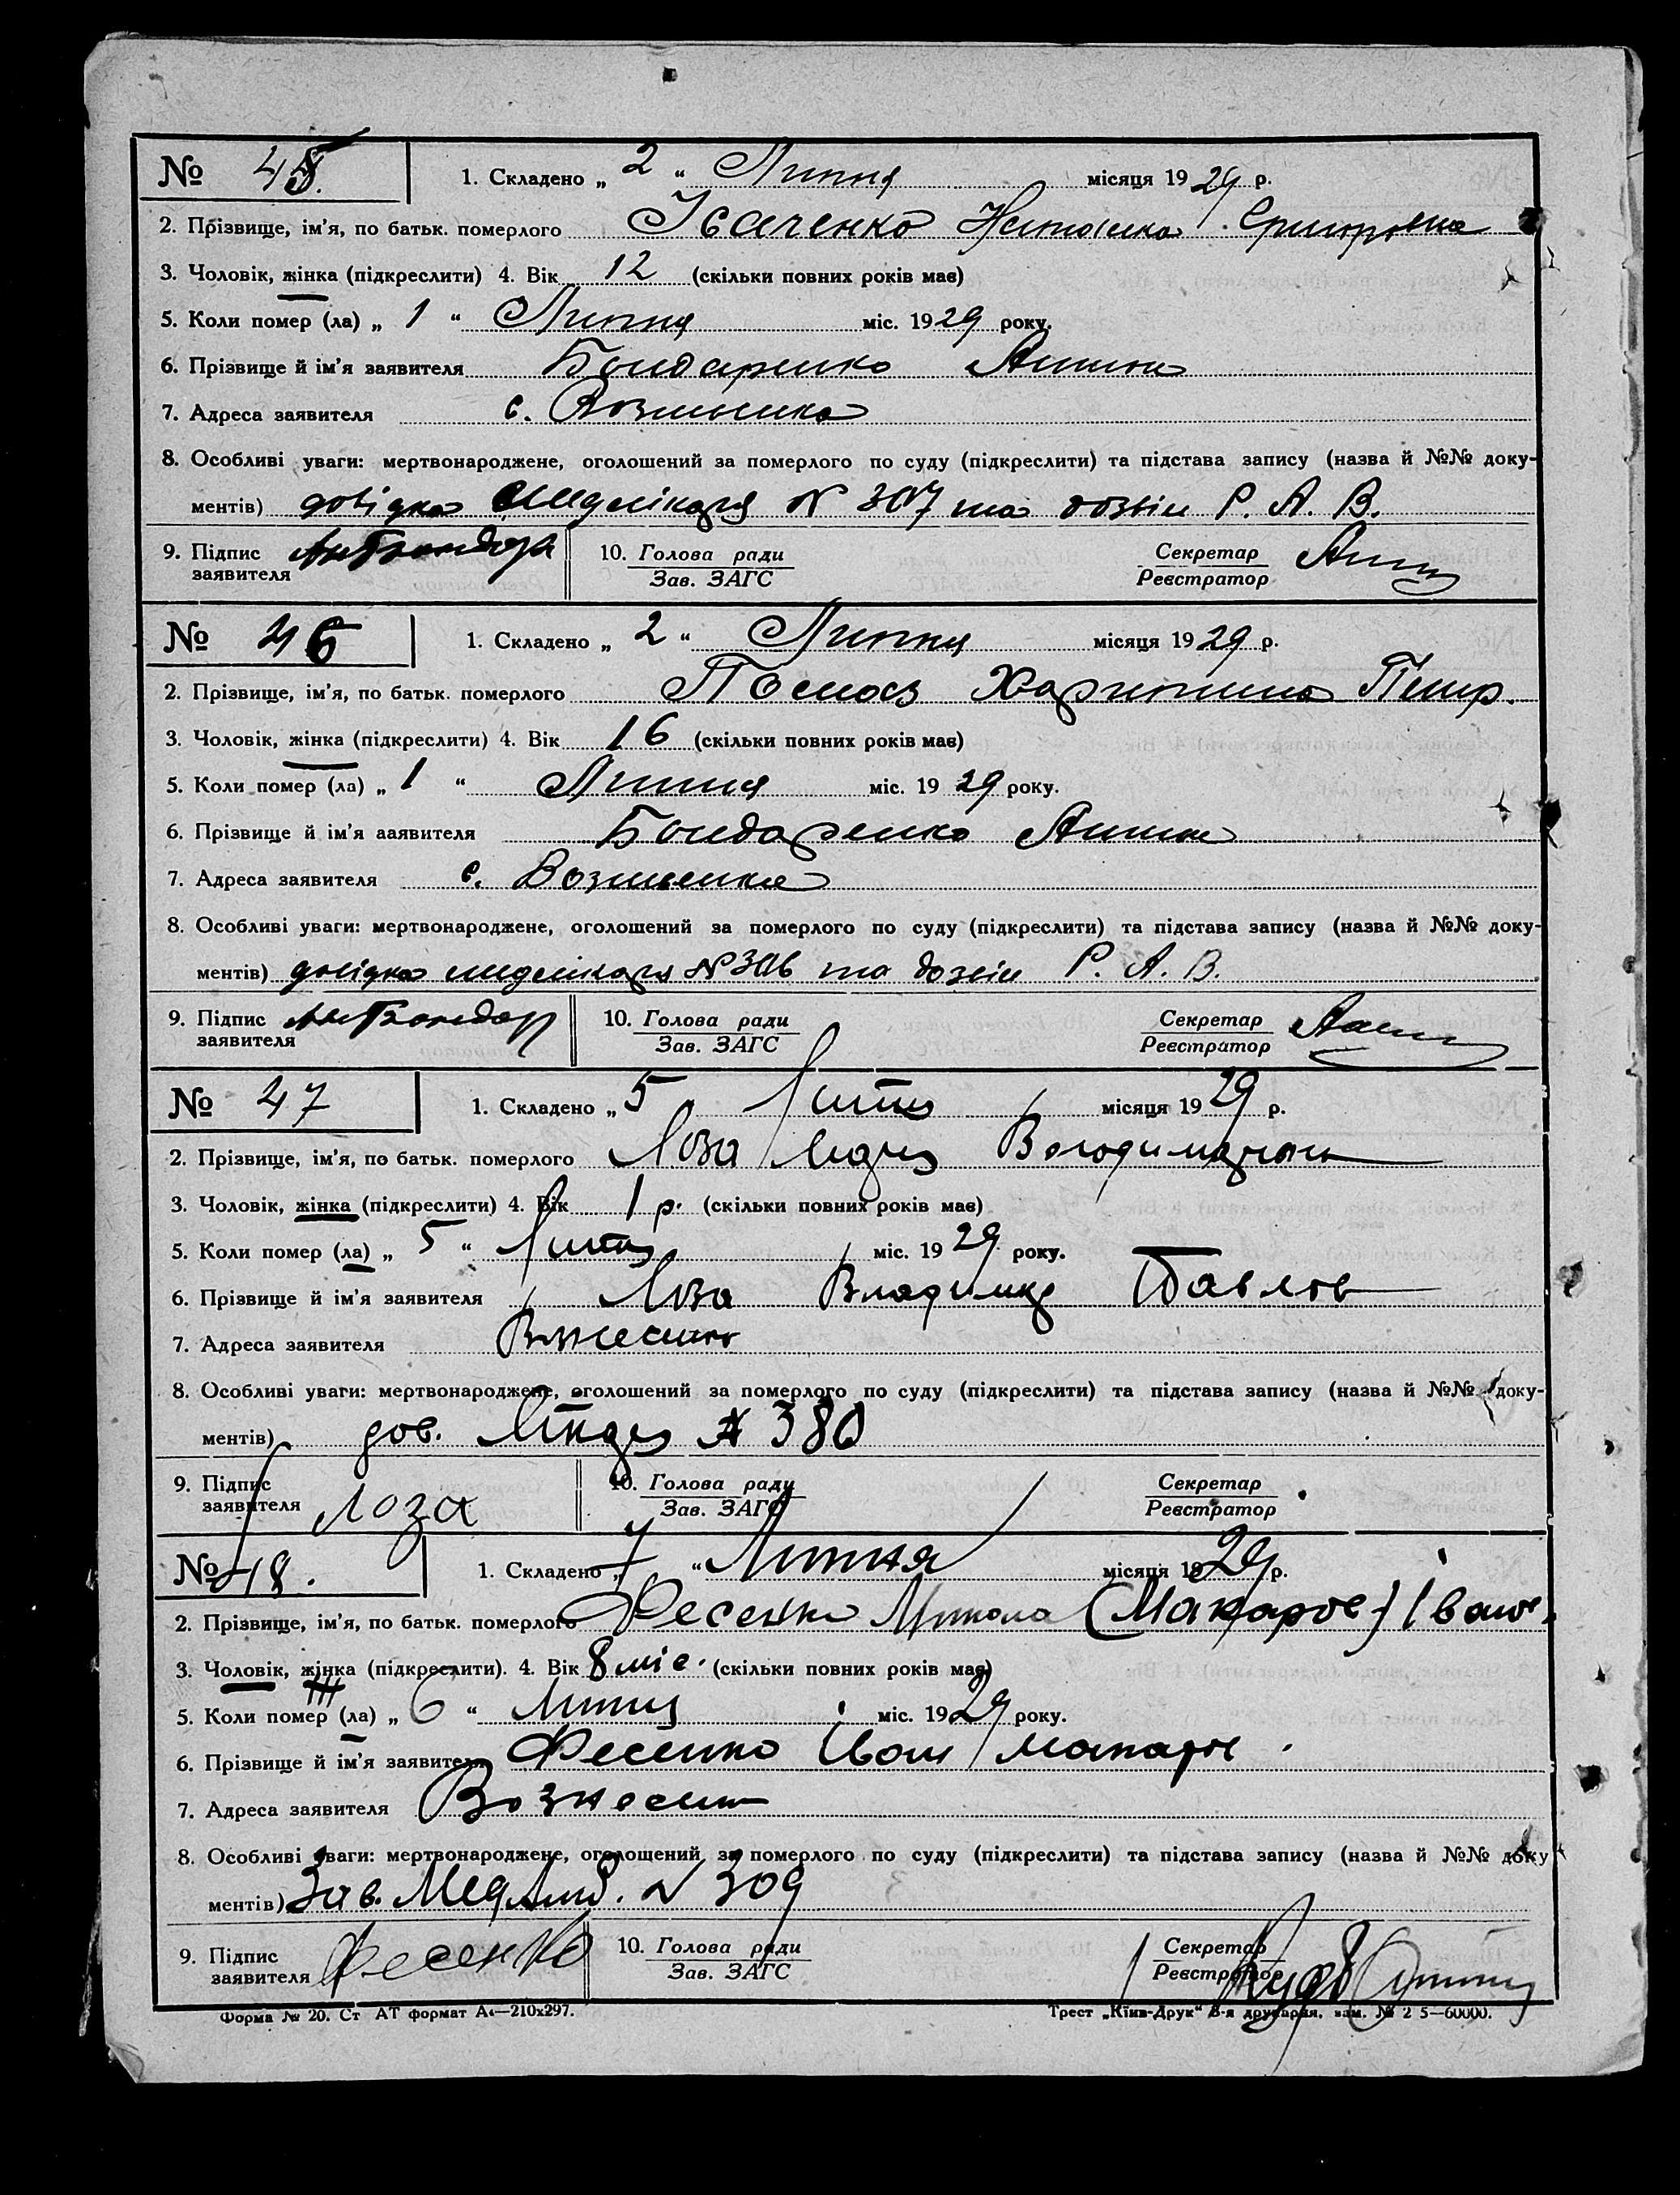 № 45. 1. Складено „ 2 “ Липня місяця 1929 р.
2. Прізвище, ім'я, по батьк. померлого Ісаченко Наталка Григоровна
3. Чоловік, жінка (підкреслити) 4. Вік 12 (скільки повних років має)
5. Коли помер (ла) „ 1 “ Липня міс. 1929 року.
6. Прізвище й ім'я заявителя Бондаренко
7. Адреса заявителя с.
8. Особливі уваги: мертвонароджене, оголошений за померлого по суду (підкреслити) та підстава запису (назва й №№ доку-
ментів) довідка медлікаря № 307 та дозвіл Р. А. В.
9. Підпис заявителя 10. Голова ради Секретар
Зав. ЗАГС Реєстратор
№ 46 1. Складено „ 2 “ Липня місяця 1929 р.
2. Прізвище, ім'я, по батьк. померлого Харитина Петр.
3. Чоловік, жінка (підкреслити) 4. Вік 16 (скільки повних років має)
5. Коли помер (ла) „ 1 “ Липня міс. 1929 року.
6. Прізвище й ім'я ааявителя Бондаренко
7. Адреса заявителя с.
8. Особливі уваги: мертвонароджене, оголошений за померлого по суду (підкреслити) та підстава запису (назва й №№ доку-
ментів) довідка медлікаря № 306 та дозвіл Р. А. В.
9. Підпис заявителя 10. Голова ради Секретар
Зав. ЗАГС Реєстратор
№ 47 1. Складено „ 5 Липня місяця 1929 р.
2. Прізвище, ім'я, по батьк. померлого Лоза Лидия
3. Чоловік, жінка (підкреслити) 4. Вік 1 р. (скільки повних років має)
5. Коли помер (ла) „ 5 “ Липня міс. 1929 року.
6. Прізвище й ім'я заявителя Лоза Владимир Павлов
7. Адреса заявителя
8. Особливі уваги: мертвонароджене, оголошений за померлого по суду (підкреслити) та підстава запису (назва й №№ доку-
ментів) дов. Лікаря № 380
9. Підпис заявителя Лоза 10. Голова ради Секретар
Зав. ЗАГС Реєстратор
№ 48. 1. Складено „ 7 “ Липня місяця 1929 р.
2. Прізвище, ім'я, по батьк. померлого Фесенко Микола (Макаров) Іванов.
3. Чоловік, жінка (підкреслити). 4. Вік 8 міс. (скільки повних років має)
5. Коли помер (ла) „ 6 “ Липня міс. 1929 року.
6. Прізвище й ім'я заявителя Фесенко Іван Макаров.
7. Адреса заявителя Вознесенк
8. Особливі уваги: мертвонароджене, оголощений за померлого по суду (підкреслити) та підстава запису (назва й №№ доку
ментів) Зав. № 309
9. Підпис заявителя Фесенко 10. Голова ради Секретар
Зав. ЗАГС Реєстратор
Форма № 20. Ст АТ формат А4—210x297. Трест „Київ-Друк“ 8-я друкарня, зам. № 2 5—60000.